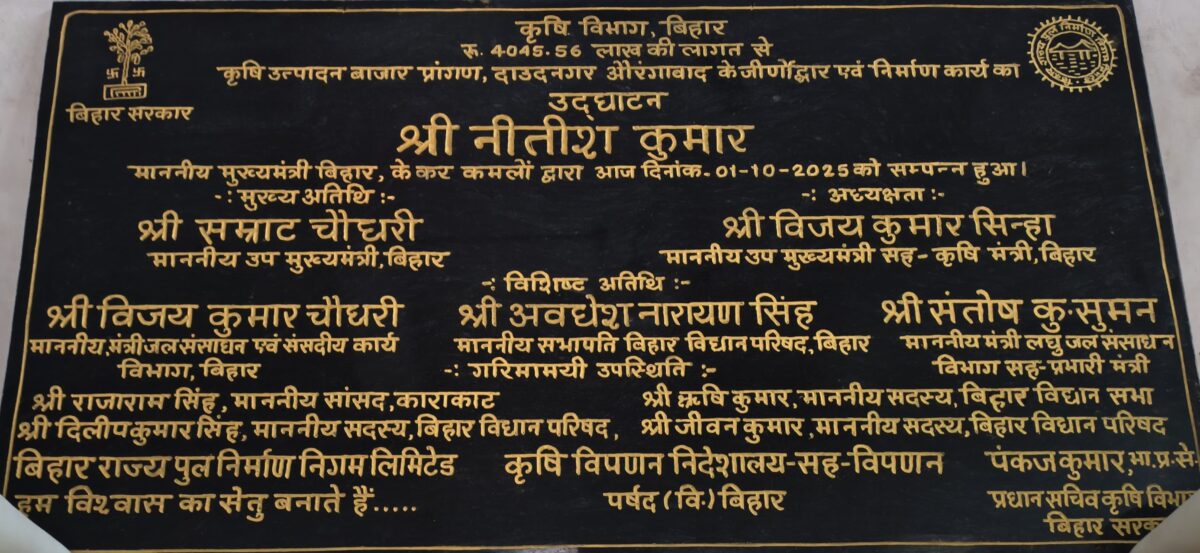 कृषि विभाग, बिहार
रू. 4045.56 लाख की लागत से
कृषि उत्पादन बाजार प्रांगण, दाउदनगर औरंगावाद के जीर्णोद्वार एवं निर्माण कार्य का
बिहार सरकार
उद्घाटन
श्री नीतीश कुमार
माननीय मुख्यमंत्री बिहार, के कर कमलों द्वारा आज दिनांक-01-10-2025 को सम्पन्न हुआ।
-: मुख्य अतिथि :- -: अध्यक्षता :-
श्री सम्राट चौधरी श्री विजय कुमार सिन्हा
माननीय उप मुख्यमंत्री, बिहार माननीय उप मुख्यमंत्री सह- कृषि मंत्री, बिहार
-: विशिष्ट अतिथि :-
श्री विजय कुमार चौधरी श्री अवधेश नारायण सिंह श्री संतोष कु. सुमन
माननीय, मंत्री जल संसाधन एवं संसदीय कार्य माननीय सभापति बिहार विधान परिषद, बिहार माननीय मंत्री लघु जल संसाधन
विभाग, बिहार विभाग सह-प्रभारी मंत्री
-: गरिमामयी उपस्थिति :-
श्री राजाराम सिंह, माननीय सांसद, काराकाट श्री ऋषि कुमार, माननीय सदस्य, बिहार विधान सभा
श्री दिलीप कुमार सिंह, माननीय सदस्य, बिहार विधान परिषद, श्री जीवन कुमार, माननीय सदस्य, बिहार विधान परिषद
बिहार राज्य पुल निर्माण निगम लिमिटेड कृषि विपणन निदेशालय-सह-विपणन पंकज कुमार, भा.प्र.से.
हम विश्वास का सेतु बनाते हैं..... पर्षद (वि.) बिहार प्रधान सचिव कृषि विभाग
बिहार सरकार